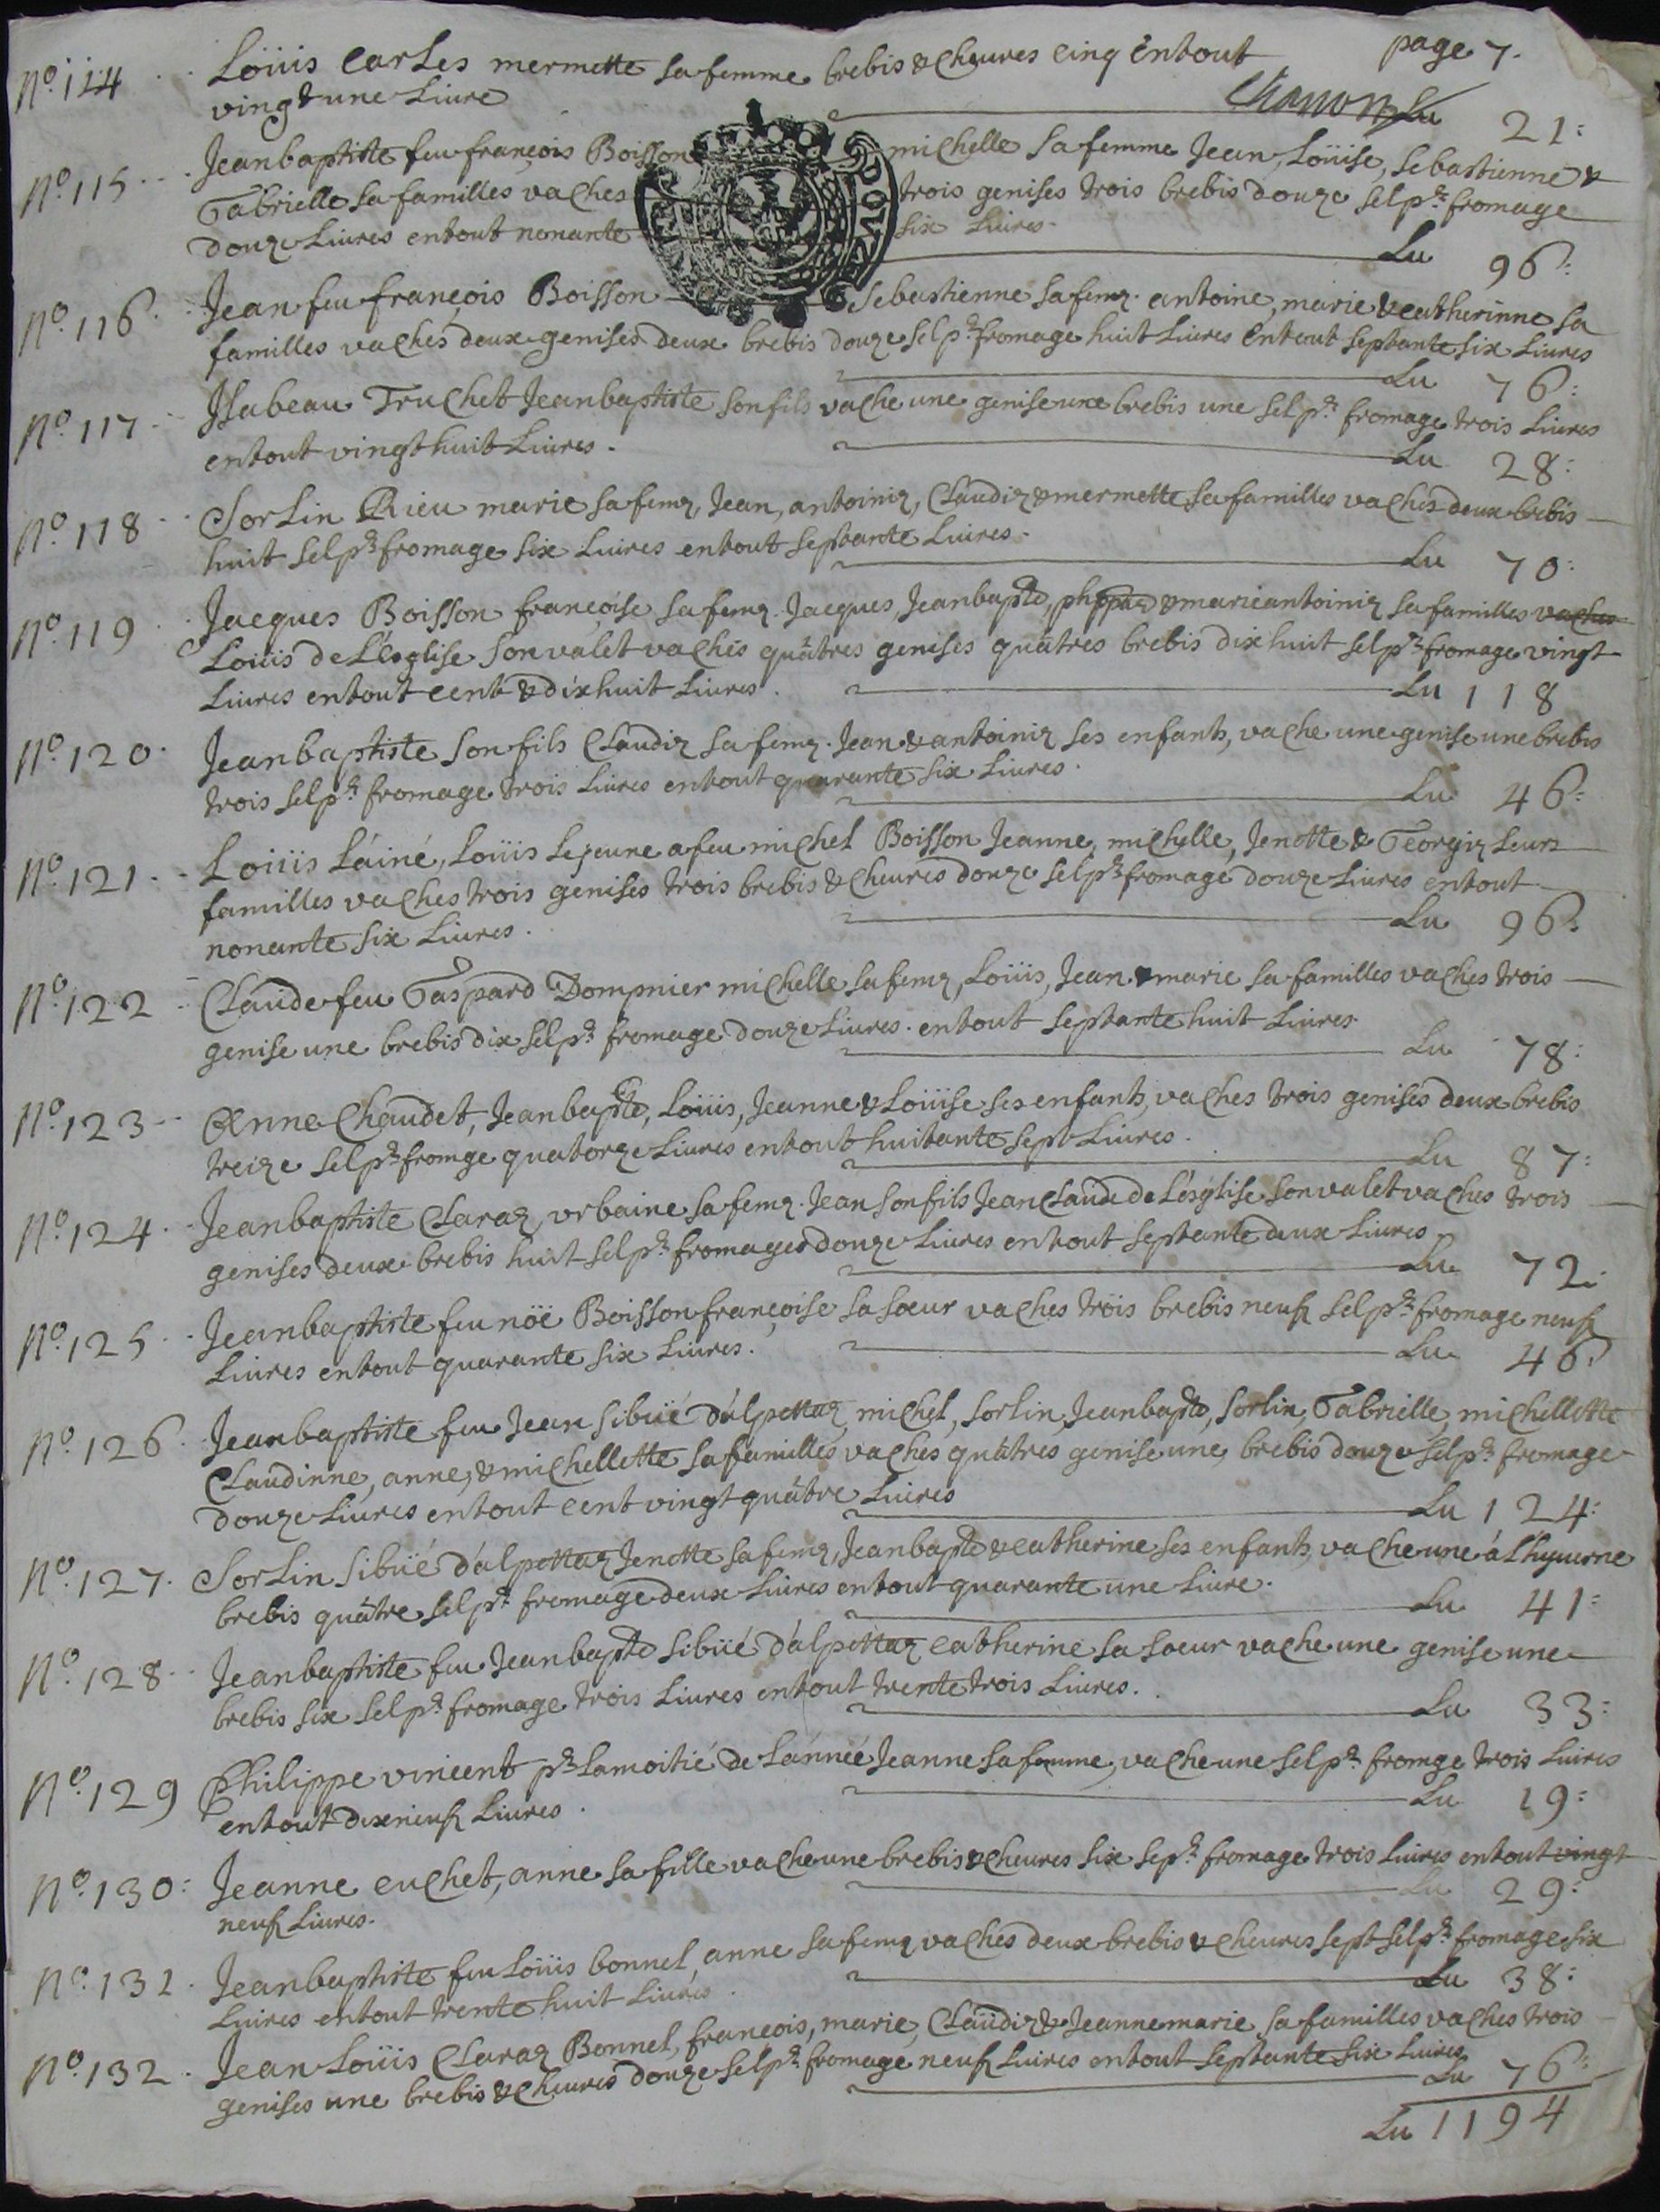 page 7.
N.º 114 Loüis Carles mermette sa femme brebis & cheures cinq entout
vingt & une Liure Lu 21:
N.º 115 Jeanbaptiste feu françois Boisson michelle sa femme Jean, Loüise, sebastienne &
Gabrielle sa familles vaches trois genises trois brebis douze selpr fromage
douze Liures entout nonante six Liures. Lu 96:
N.º 116 Jean feu françois Boisson sebastienne safemz. antoine, marie & catherinne sa
familles vaches deux genises deux brebis douze selpr fromage huit Liures entout septante six Liures
Lu 76:
N.º 117 Jsabeau Truchet Jeanbaptiste son fils vache une genise une brebis une selpr fromage trois Liures
entout vingthuit Liures. Lu 28:
N.º 118 Sorlin Rieu marie safemz, Jean, antoiniz, Claudiz & mermette sa familles vaches deux brebis
huit selpr fromage six Liures entout septante Liures. Lu 70:
N.º 119 Jacques Boisson françoise safemz. Jacques, Jeanbapte, & marieantoiniz sa familles vaches
Loüis de L'église son valet vaches quâtres genises quâtres brebis dixhuit selpr fromage vingt
Liures entout cent & dixhuit Liures. Lu 118
N.º 120 Jeanbaptiste son fils Claudiz safemz. Jean & antoiniz ses enfants, vache une genise une brebis
trois selpr fromage trois Liures entout quarante six Liures. Lu 46:
N.º 121 Loüis L'áiné, Loüis Lejeune a feu michel Boisson Jeanne, michelle, Jenotte & Georgiz Leurs
familles vaches trois genises trois brebis & cheures douze selpr fromage douze Liures entout
nonante six Liures. Lu 96:
N.º 122 Claude feu Gaspard Dompnier michelle safemz, Loüis, Jean & marie sa familles vaches trois
genise une brebis dix selpr fromage douze Liures. entout septante huit Liures. Lu 78:
N.º 123 Anne Chaudet, Jeanbapte, Loüis, Jeanne & Loüise ses enfants, vaches trois genises deux brebis
treize selpr fromge quatorze Liures entout huitante sept Liures. Lu 87:
N.º 124 Jeanbaptiste Claraz, vrbaine safemz. Jean son fils Jean Claude de L'ésglise son valet vaches trois
genises deux brebis huit selpr fromages douze Liures entout septante deux Liures Lu 72:
N.º 125 Jeanbaptiste feu nöé Boisson françoise sa soeur vaches trois brebis neuf selpr fromage neuf
Liures entout quarante six Liures. Lu 46:
N.º 126 Jeanbaptiste feu Jean sibüé d'alpettaz, michel, sorlin, Jeanbapte, sorlin, Gabrielle, michellette
Claudinne, anne, & michellette sa familles vaches quâtres genise une, brebis douze selpr fromage
douze Liures entout cent vingt quâtre Liures Lu 124:
N.º 127 Sorlin sibüé d'alpettaz Jenotte safemz, Jeanbapte & catherine ses enfants, vache une á L'hyuerne
brebis quâtre selpr fromage deux Liures entout quarante une Liure. Lu 41:
N.º 128 Jeanbaptiste feu Jeanbapte sibüé d'alpettaz catherine sa soeur vache une genise une
brebis six selpr fromage trois Liures entout trente trois Liures. Lu 33:
N.º 129 Philippe vincent pr lamoitié de L'ánnée Jeanne sa femme, vache une selpr fromge trois Liures
entout dixneuf Liures. Lu 19:
N.º 130 Jeanne cuchet, anne sa fille vache une brebis & cheures six sepr fromage trois Liures entout vingt
neuf Liures. Lu 29:
N.º 131 Jeanbaptiste feu Loüis bonnel, anne safemz vaches deux brebis & cheures sept selpr fromage six
Liures entout trente huit Liures. Lu 38:
N.º 132 Jean Loüis Claraz Bonnel, francois, marie, Claudiz & Jeannemarie sa familles vaches trois
genises une brebis & cheures douze selpr fromage neuf Liures entout septante six Liures Lu 76:
Lu 1194